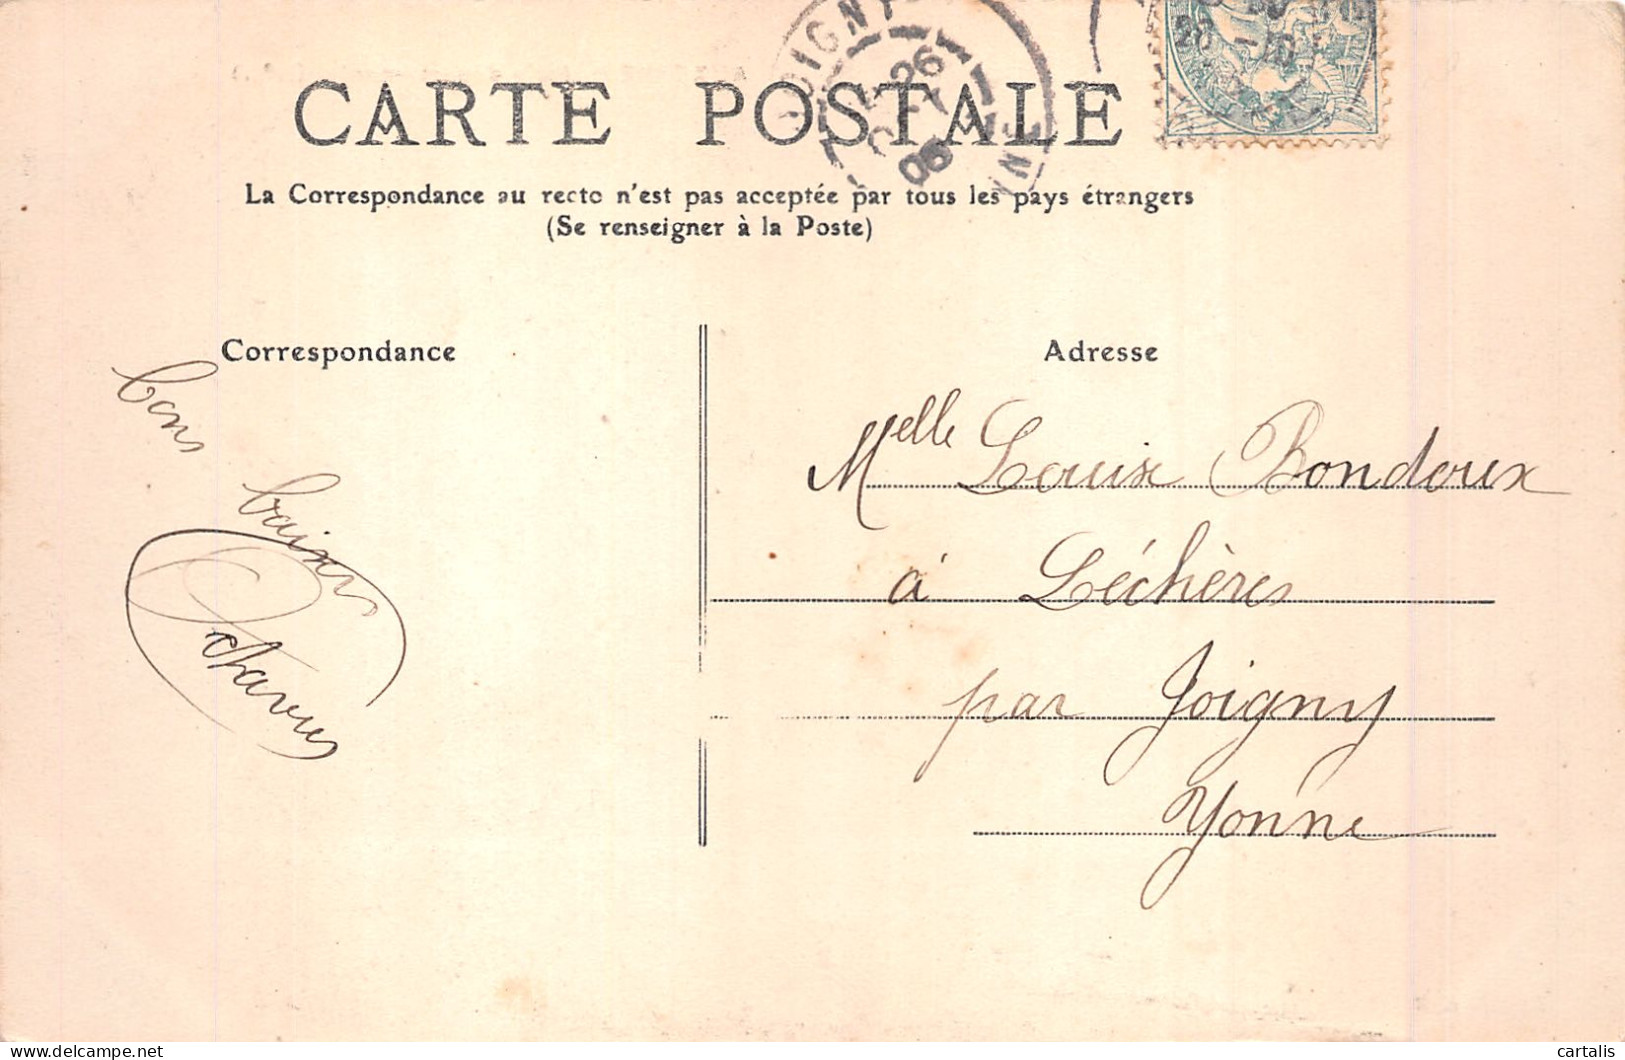 CARTE POSTALE
La Correspondance au recto n'est pas acceptée par tous les pays étrangers
(Se renseigner à la Poste)
Correspondance
Adresse
bons
baisers
Melle Louise Bondoux
à Léchères
par Joigny
Yonne
JOIGNY
26
06
cartalis
www.delcampe.net